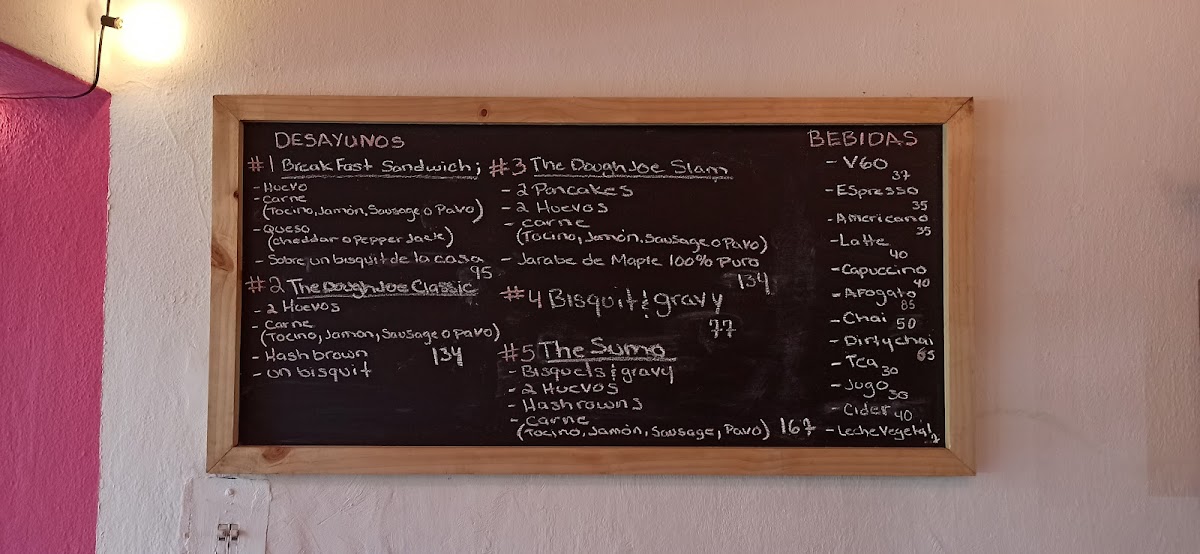 DESAYUNOS
#1 BreakFast Sandwich;
- Huevo
- carne
(Tocino, Jamón, Sausage o Pavo)
- Queso
(cheddar o Pepper Jack)
- Sobre un bisquit de la casa
95
#2 The DoughJoe Classic
- 2 Huevos
- carne
(Tocino, Jamon, Sausage o Pavo)
- Hash brown
134
- un bisquit
#3 The DoughJoe Slam
- 2 Pancakes
- 2 Huevos
- carne
(Tocino, Jamón, Sausage o Pavo)
- Jarabe de Maple 100% Puro
134
#4 Bisquit & gravy
77
#5 The Sumo
- Bisquets & gravy
- 2 Huevos
- Hashrowns
- carne
(Tocino, Jamón, Sausage, Pavo) 167
BEBIDAS
- V60
37
- ESpresso
35
- Americano
35
- Latte
40
- Capuccino
40
- Afogato
85
- Chai 50
- Dirty chai
65
- Tea
30
- Jugo
30
- Cider 40
- Leche Vegetal